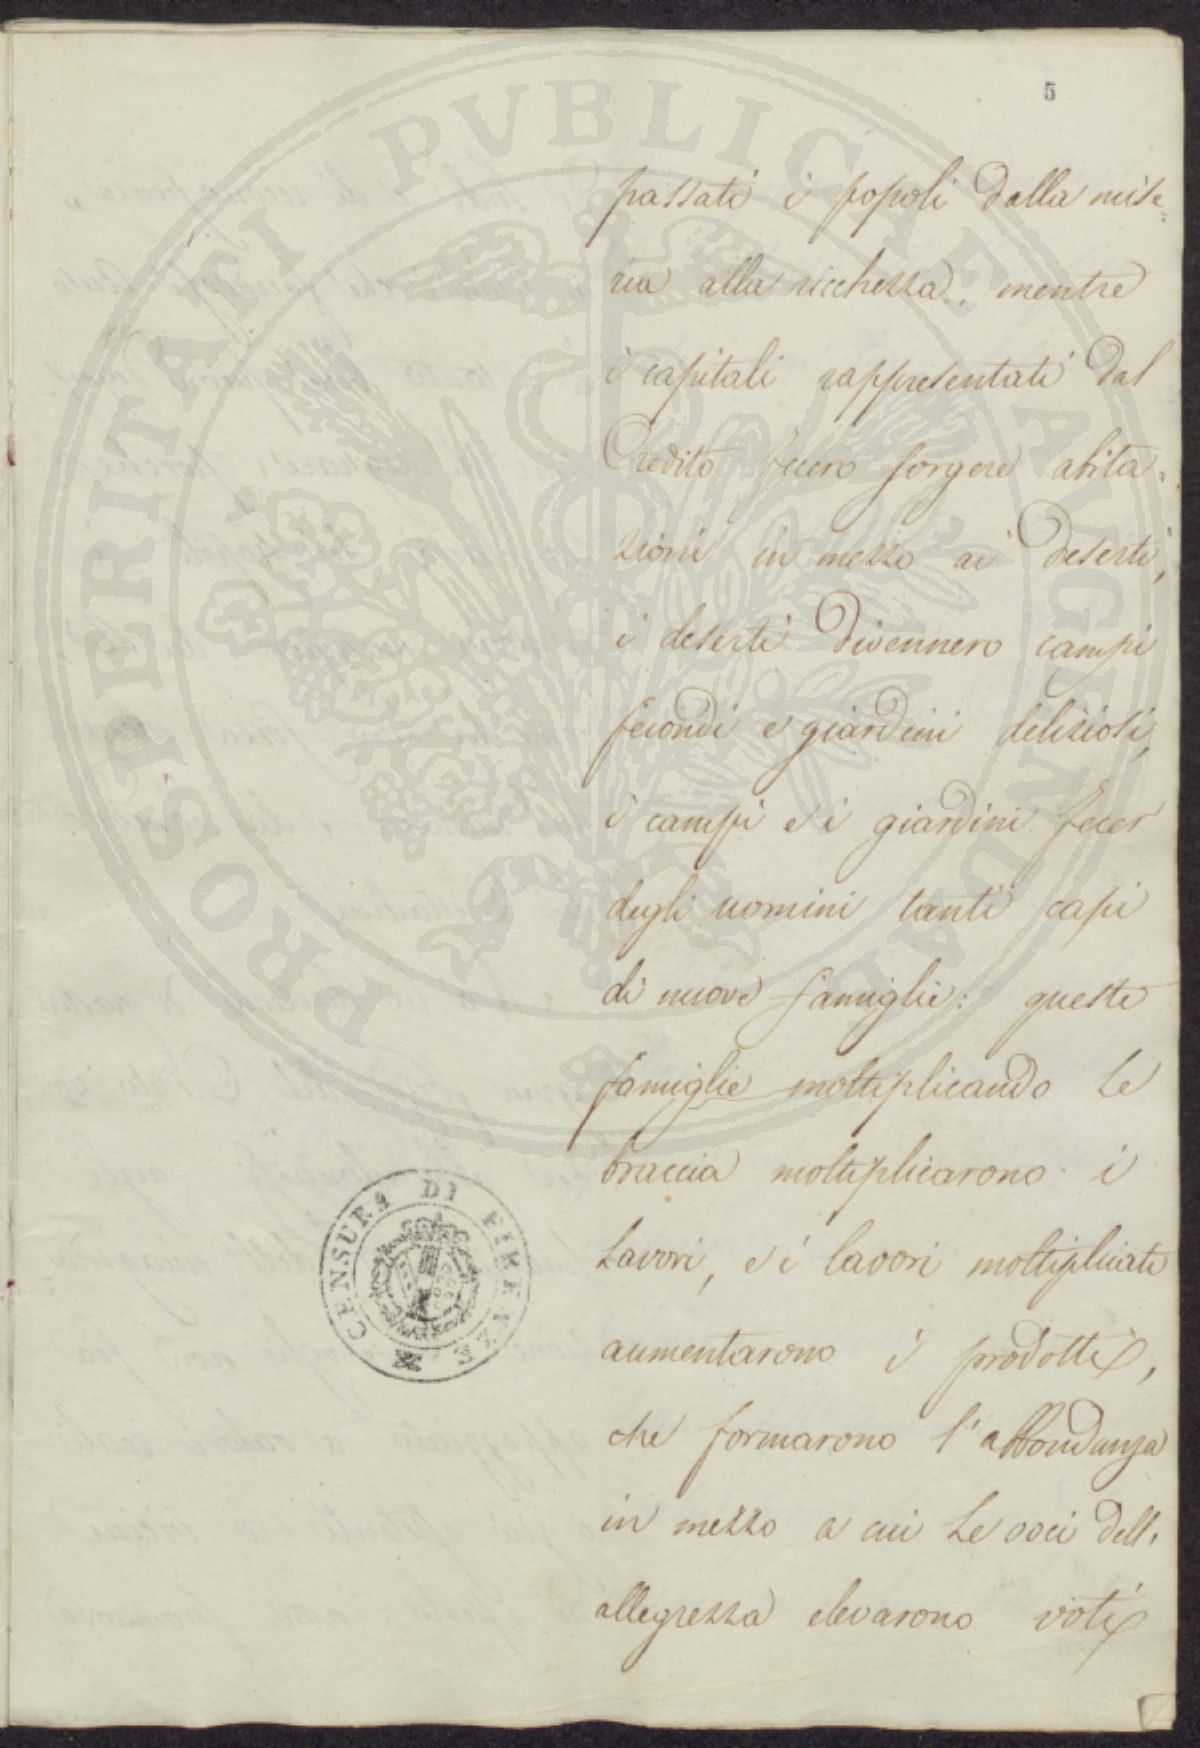 5
passati i popoli dalla mise=
ria alla ricchezza, mentre
i capitali rappresentati dal
Credito fecero sorgere abita=
zioni in mezzo ai deserti,
i deserti divennero campi
fecondi e giardini deliziosi,
i campi e i giardini fecer
degli uomini tanti capi
di nuove famiglie: queste
famiglie moltiplicando le
braccia moltiplicarono i
lavori, e i lavori moltiplicati
aumentarono i prodotti,
che formarono l'abbondanza
in mezzo a cui le voci dell'
allegrezza elevarono voti
CENSURA DI FIRENZE
PROSPERITATI PVBLICAE AVGENDAE